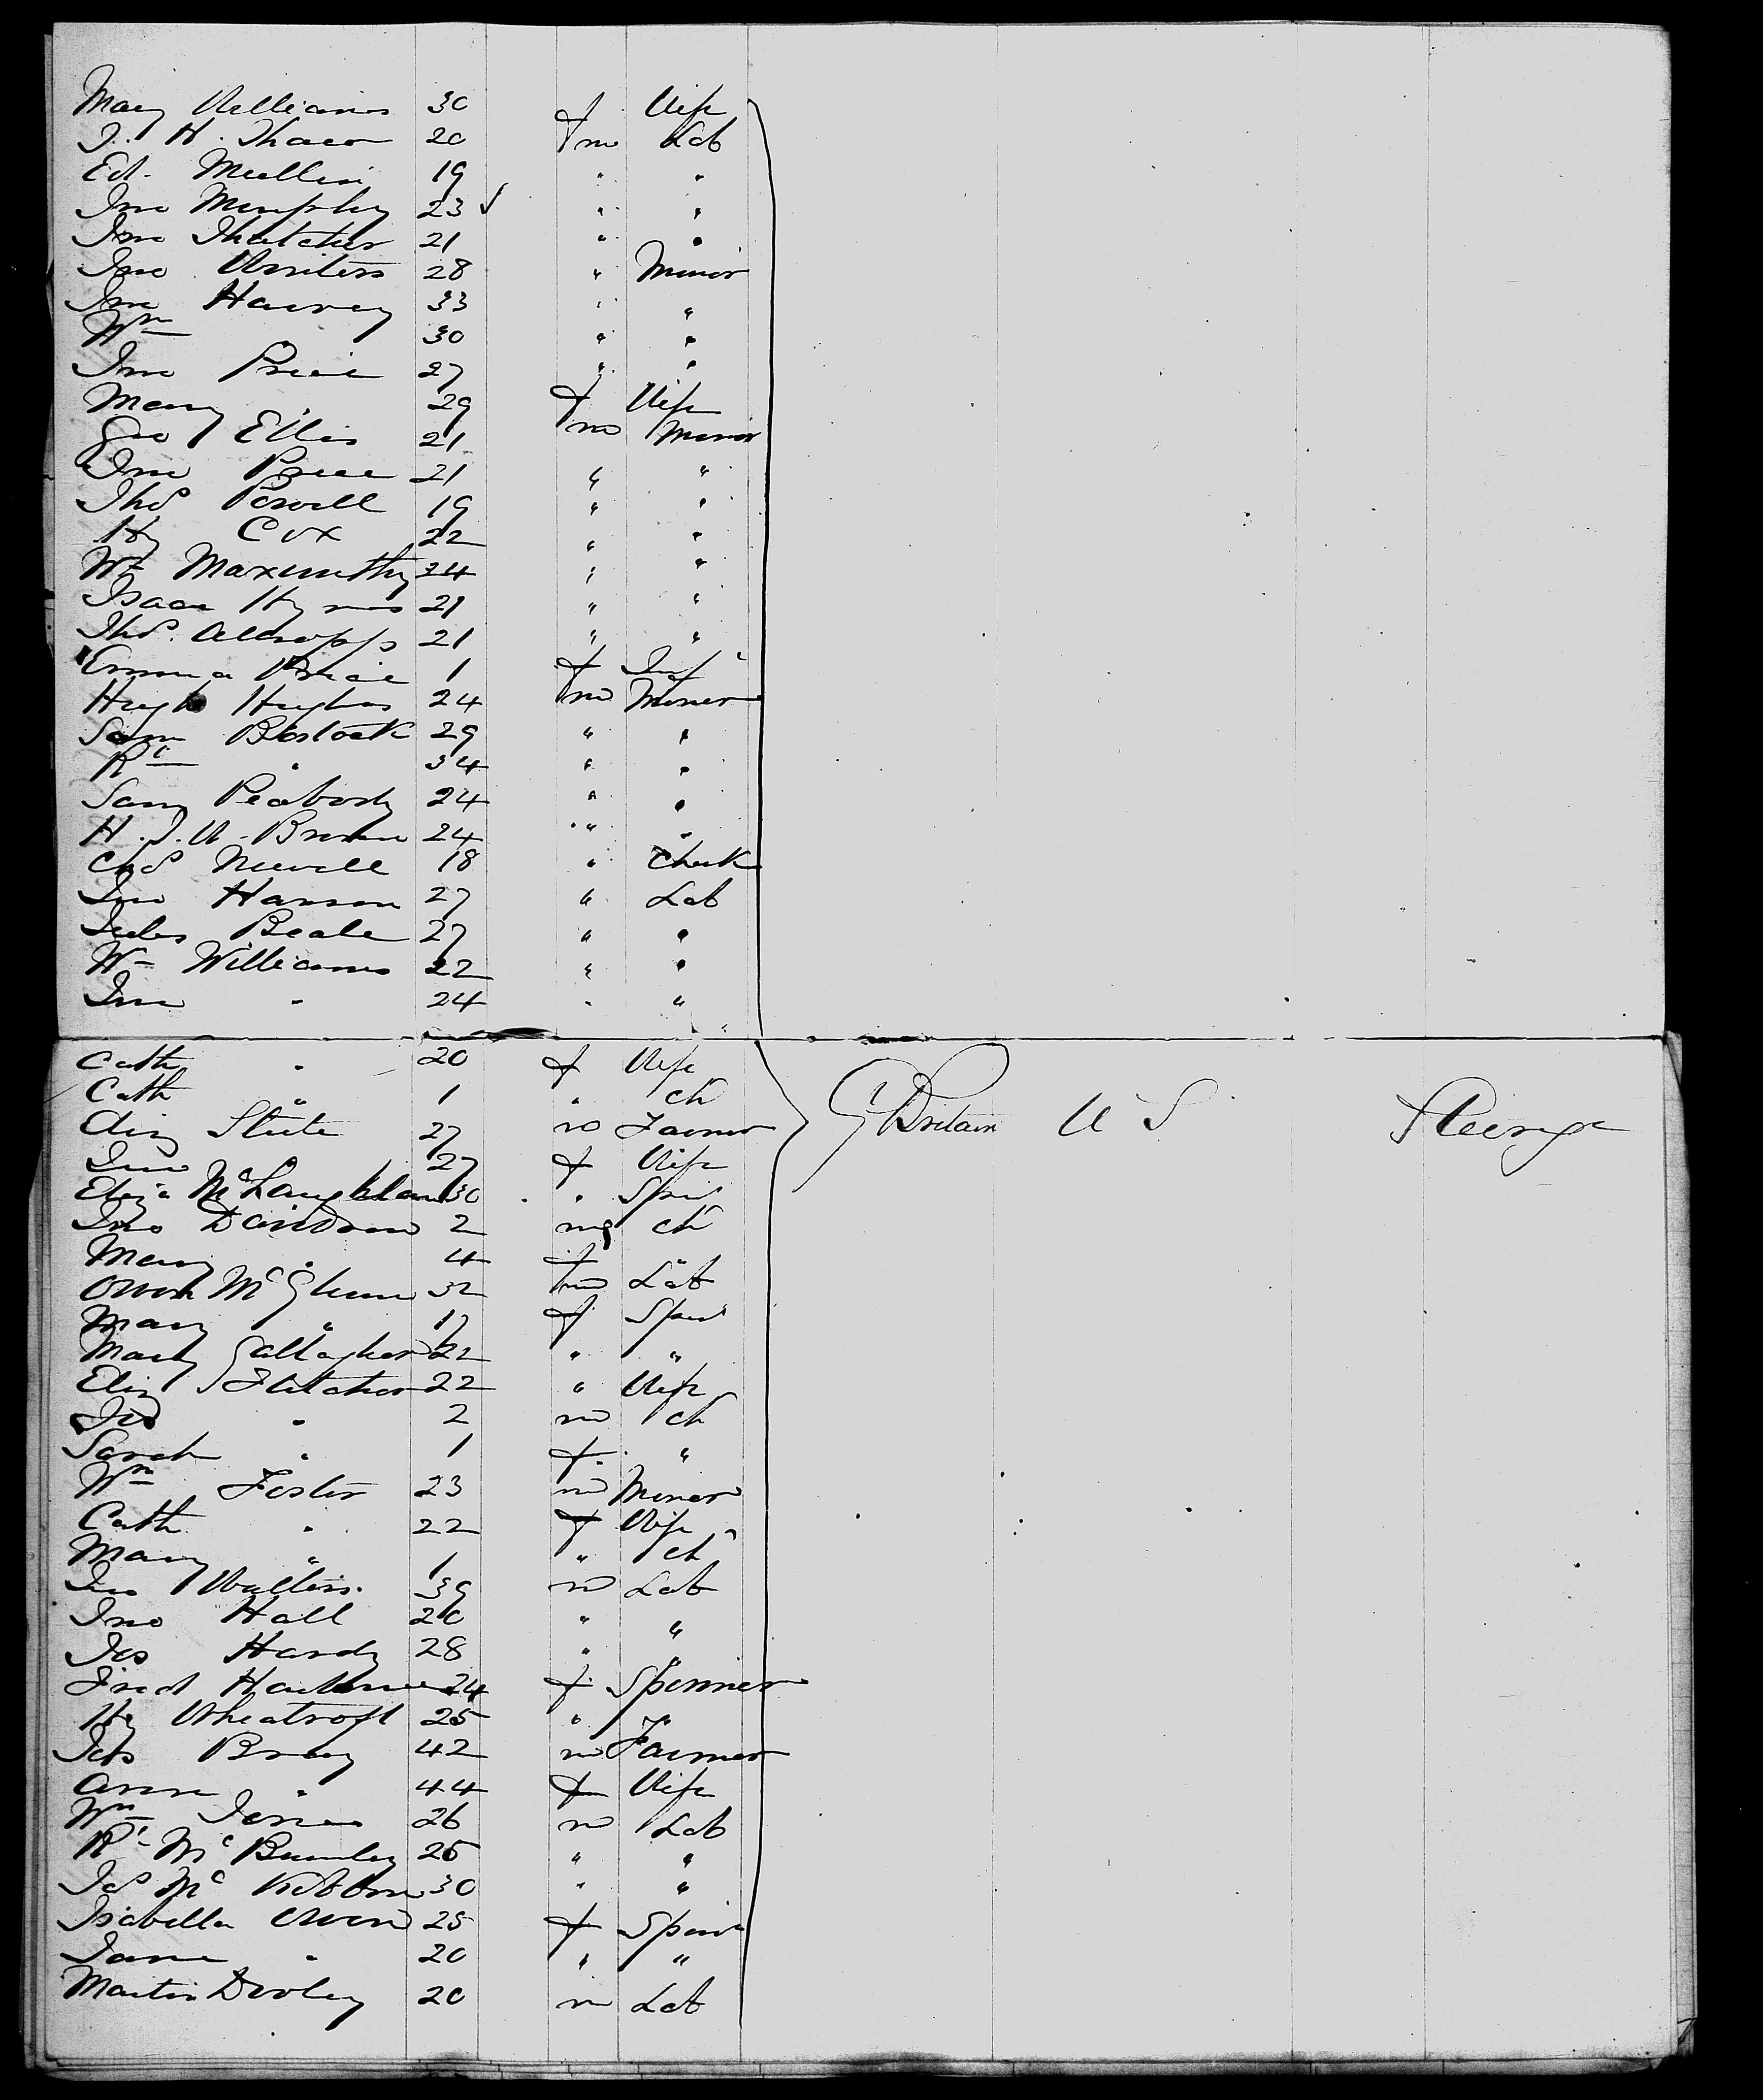 Mary Williams 30 f Wife
J. H. Thaer 20 m Lab
Ed. Mullin 19 " "
Jno Murphy 23 ✓ " "
Jno Thatcher 21 " "
Jno Winters 28 " Miner
Jno Harvey 33 " "
Wm 30 " "
Jno Price 27 " "
Mary 29 f Wife
Geo Ellis 21 m Miner
Jno Price 21 " "
Thos Powell 19 " "
Hy Cox 22 " "
Wm Maxworthy 24 " "
Isaac 21 " "
Thos. Allsopps 21 " "
Emma Price 1 f Inft
Hugh Hughes 24 m Miner
Sam Bostock 29 " "
Rt " 34 " "
Sam Peabody 24 " "
H. J. W. Brown 24 " "
Chs Newell 18 " Clerk
Jno Hanson 27 " Lab
Jules Beale 27 " "
Wm Williams 22 " "
Jno " 24 " "
Cath " 20 f Wife
Cath " 1 " Ch
27 m Farmer G Britain U S Steerage
27 f Wife
Eliza McLaughlan 30 " Spin
Jno Davidson 2 m Ch
Mary " 4 f
Owen McGlunn 32 m Lab
Mary " 17 f Spin
Mary Gallagher 22 " "
Eliz Fletcher 22 " Wife
Jno " 2 m Ch
Sarah " 1 f "
Wm Foster 23 m Miner
Cath " 22 f Wife
Mary " 1 " Ch
Jno Walters 39 m Lab
Jno Hall 20 " "
Jas Hardy 28 " "
24 f Spinner
Hy Wheatcroft 25 " "
Jas Bray 42 m Farmer
Ann " 44 f Wife
Wm Jones 26 m Lab
Rt Mc 25 " "
Js McKibbon 30 " "
Isabella Owen 25 f Spin
Jane " 20 " "
Martin Dooley 20 m Lab